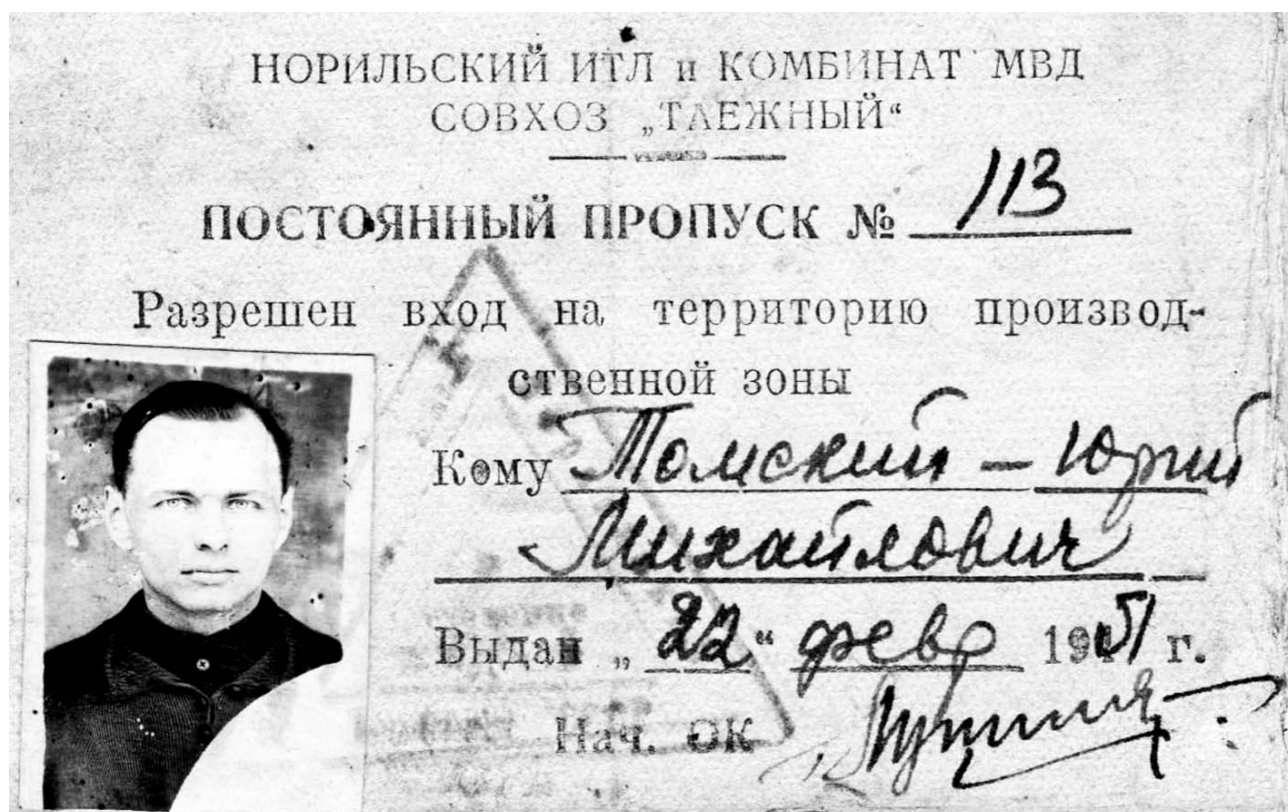 НОРИЛЬСКИЙ ИТЛ и КОМБИНАТ МВД
СОВХОЗ „ТАЕЖНЫЙ“
ПОСТОЯННЫЙ ПРОПУСК № 113
Разрешен вход на территорию производ-
ственной зоны
Кому Томский – Юрий
Михайлович
Выдан „22“ февр 1951 г.
Нач. ОК